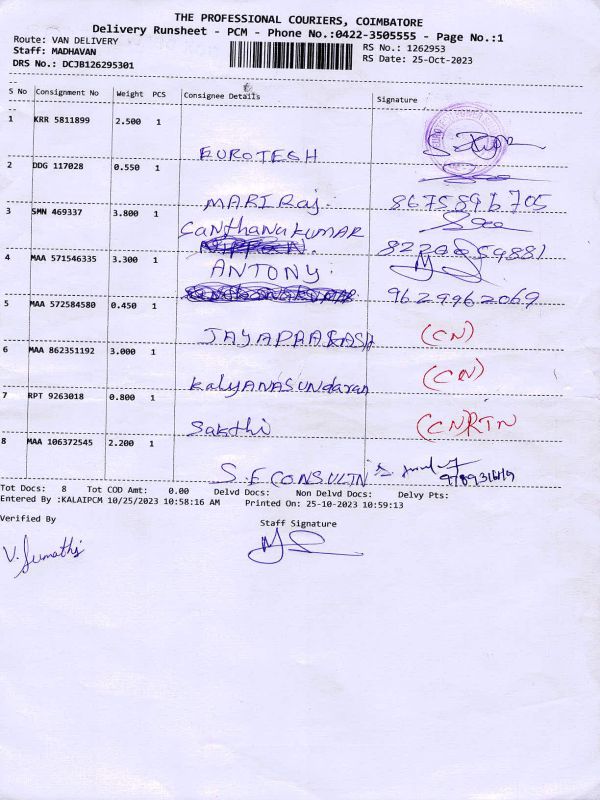 THE PROFESSIONAL COURIERS, COIMBATORE
Delivery Runsheet - PCM - Phone No.:0422-3505555 - Page No.:1
Route: VAN DELIVERY RS No.: 1262953
Staff: MADHAVAN RS Date: 25-Oct-2023
DRS No.: DCJB126295301
S No Consignment No Weight PCS Consignee Details Signature
1 KRR 5811899 2.500 1
EUROTESH
2 DDG 117028 0.550 1
MARIRaj. 8675896705
3 SMN 469337 3.800 1
Santhanakumar
NIPPON. 8220059881
4 MAA 571546335 3.300 1
ANTONY.
9629962069
5 MAA 572584580 0.450 1
JAYAPRAKASH (CN)
6 MAA 862351192 3.000 1
KalyANASUndaran (CN)
7 RPT 9263018 0.800 1
Sakthi (CN)RTN
8 MAA 106372545 2.200 1
S.E CONSULTIN
Tot Docs: 8 Tot COD Amt: 0.00 Delvd Docs: Non Delvd Docs: Delvy Pts:
Entered By :KALAIPCM 10/25/2023 10:58:16 AM Printed On: 25-10-2023 10:59:13
Verified By Staff Signature
V. Sumathi